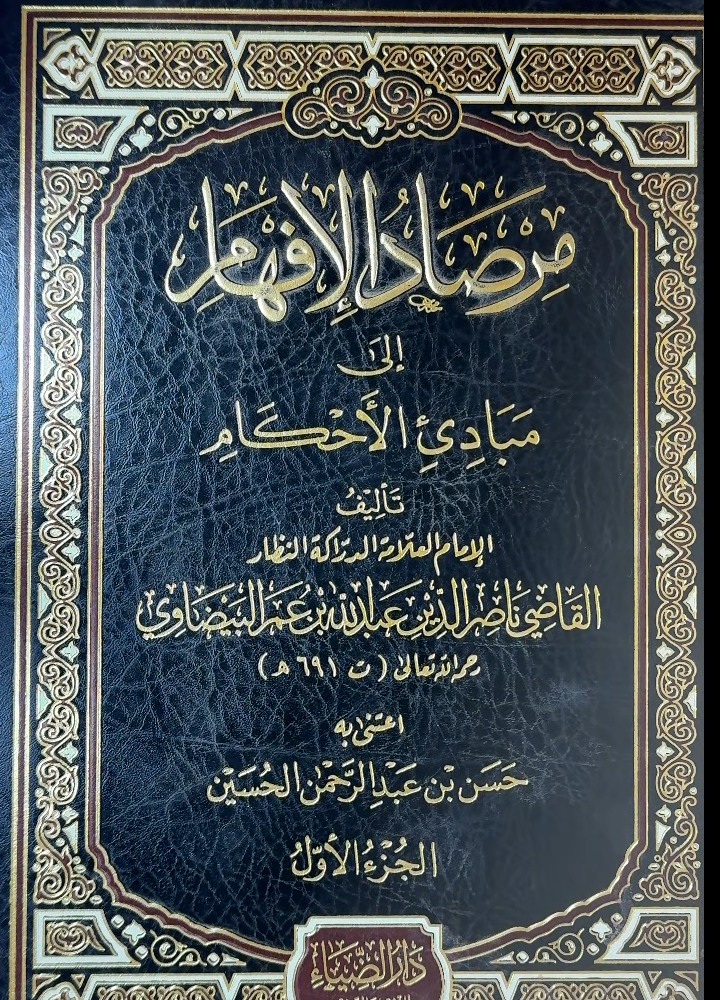 مِرصَادُ الإِفهَامِ
إلىٰ
مَبَادِئِ الأَحْكَامِ
تَأليفُ
الإمام العلامة الدرّاكة النظار
القَاضِي نَاصِر الدِّين عَبدالله بن عُمَر البَيضَاوي
رحمه الله تعالى (ت ٦٩١ هـ)
اعتنى به
حَسَن بن عَبدِ الرَّحمٰن الحُسَيْن
الجُزءُ الأوّلُ
دَارُ الضِّيَاءِ